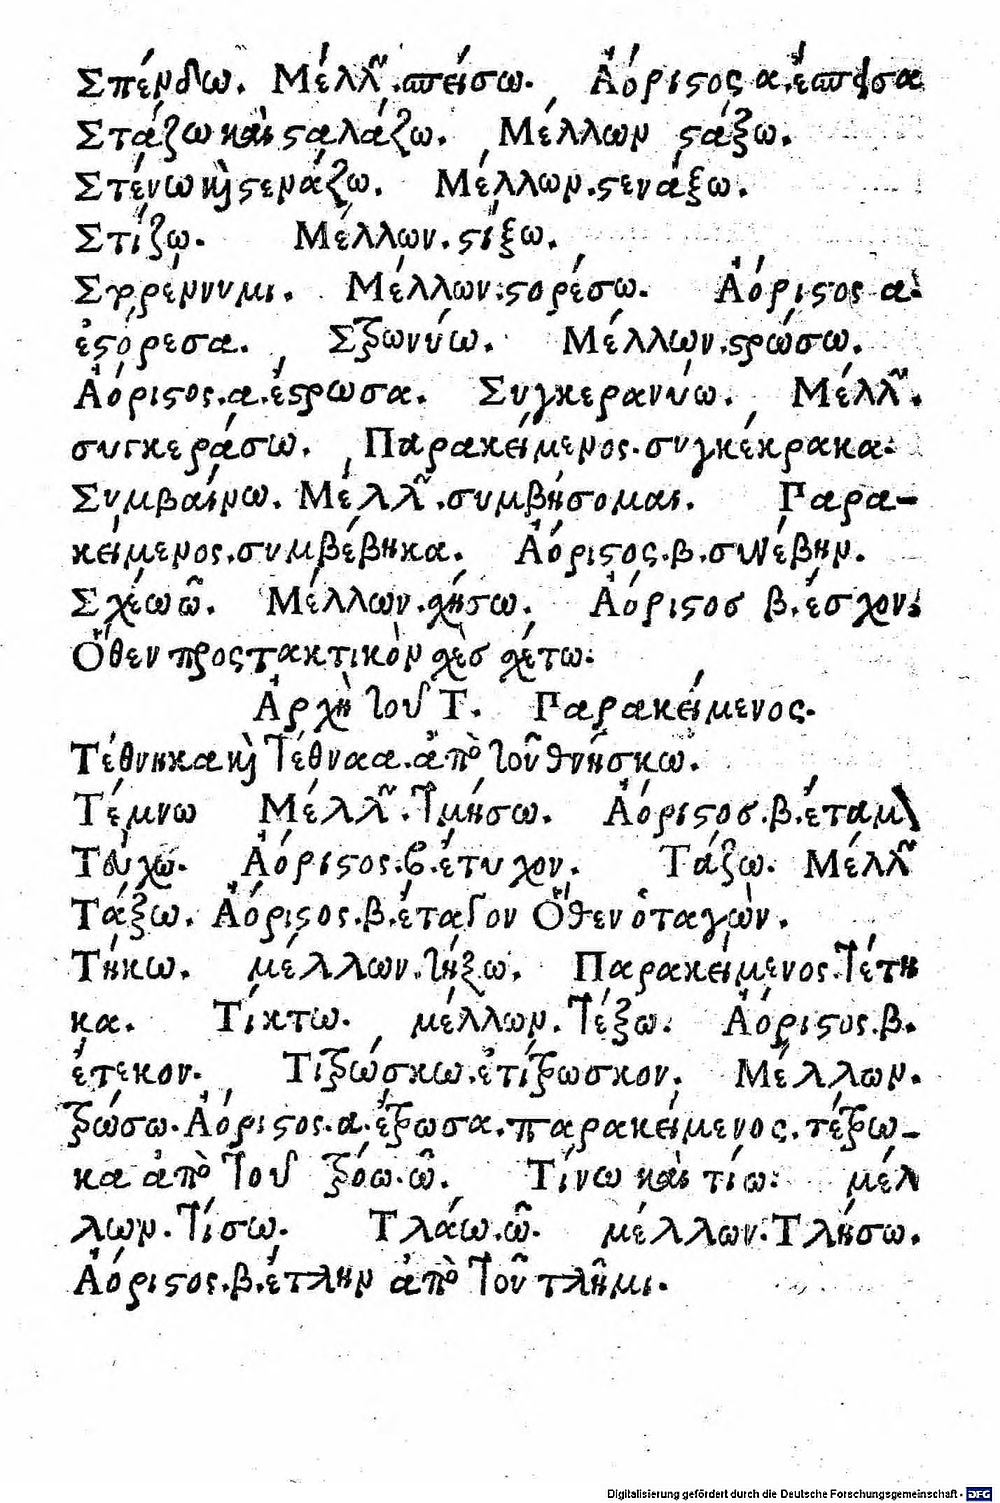 Σπένδω. Μέλλ῀.σπείσω. Ἀόριστος α.ἔσπεισα
Στάζω καὶ σταλάζω. Μέλλων στάξω.
Στένω καὶ στενάζω. Μέλλων.στενάξω.
Στίζω. Μέλλων.στίξω.
Στορέννυμι. Μέλλων.στορέσω. Ἀόριστος α.
ἐστόρεσα. Στρωνύω. Μέλλων.στρώσω.
Ἀόριστος.α.ἔστρωσα. Συγκεραννύω. Μέλλ῀.
συγκεράσω. Παρακείμενος.συγκέκρακα.
Συμβαίνω. Μέλλ῀.συμβήσομαι. Παρα-
κείμενος.συμβέβηκα. Ἀόριστος.β.συνέβην.
Σχέω ῶ. Μέλλων.σχήσω. Ἀόριστος β.ἔσχον.
Ὅθεν προστακτικὸν σχὲς σχέτω.
Ἀρχὴ τοῦ Τ. Παρακείμενος.
Τέθνηκα καὶ τέθναα.ἀπὸ τοῦ θνήσκω.
Τέμνω Μέλλ῀.τμήσω. Ἀόριστος.β.ἔταμ\
Τεύχω. Ἀόριστος.β.ἔτυχον. Τάζω. Μέλλ῀
Τάξω. Ἀόριστος.β.ἔταγον Ὅθεν ὁταγὼν.
Τήκω. μέλλων.τήξω. Παρακείμενος.τέτη
κα. Τίκτω. μέλλων.τέξω. Ἀόριστος.β.
ἔτεκον. Τιτρώσκω.ἐτίτρωσκον. Μέλλων.
τρώσω.Ἀόριστος.α.ἔτρωσα.παρακείμενος.τέτρω-
κα ἀπὸ τοῦ τρόω.ῶ. Τίνω καὶ τίω. μέλ
λων.τίσω. Τλάω.ῶ. μέλλων.Τλήσω.
Ἀόριστος.β.ἔτλην ἀπὸ τοῦ τλῆμι.
Digitalisierung gefördert durch die Deutsche Forschungsgemeinschaft - DFG